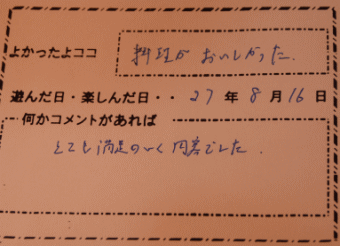 よかったよココ 料理が おいしかった.
遊んだ日・楽しんだ日・・ 27 年 8 月 16 日
何かコメントがあれば
とても満足のいく内容でした.